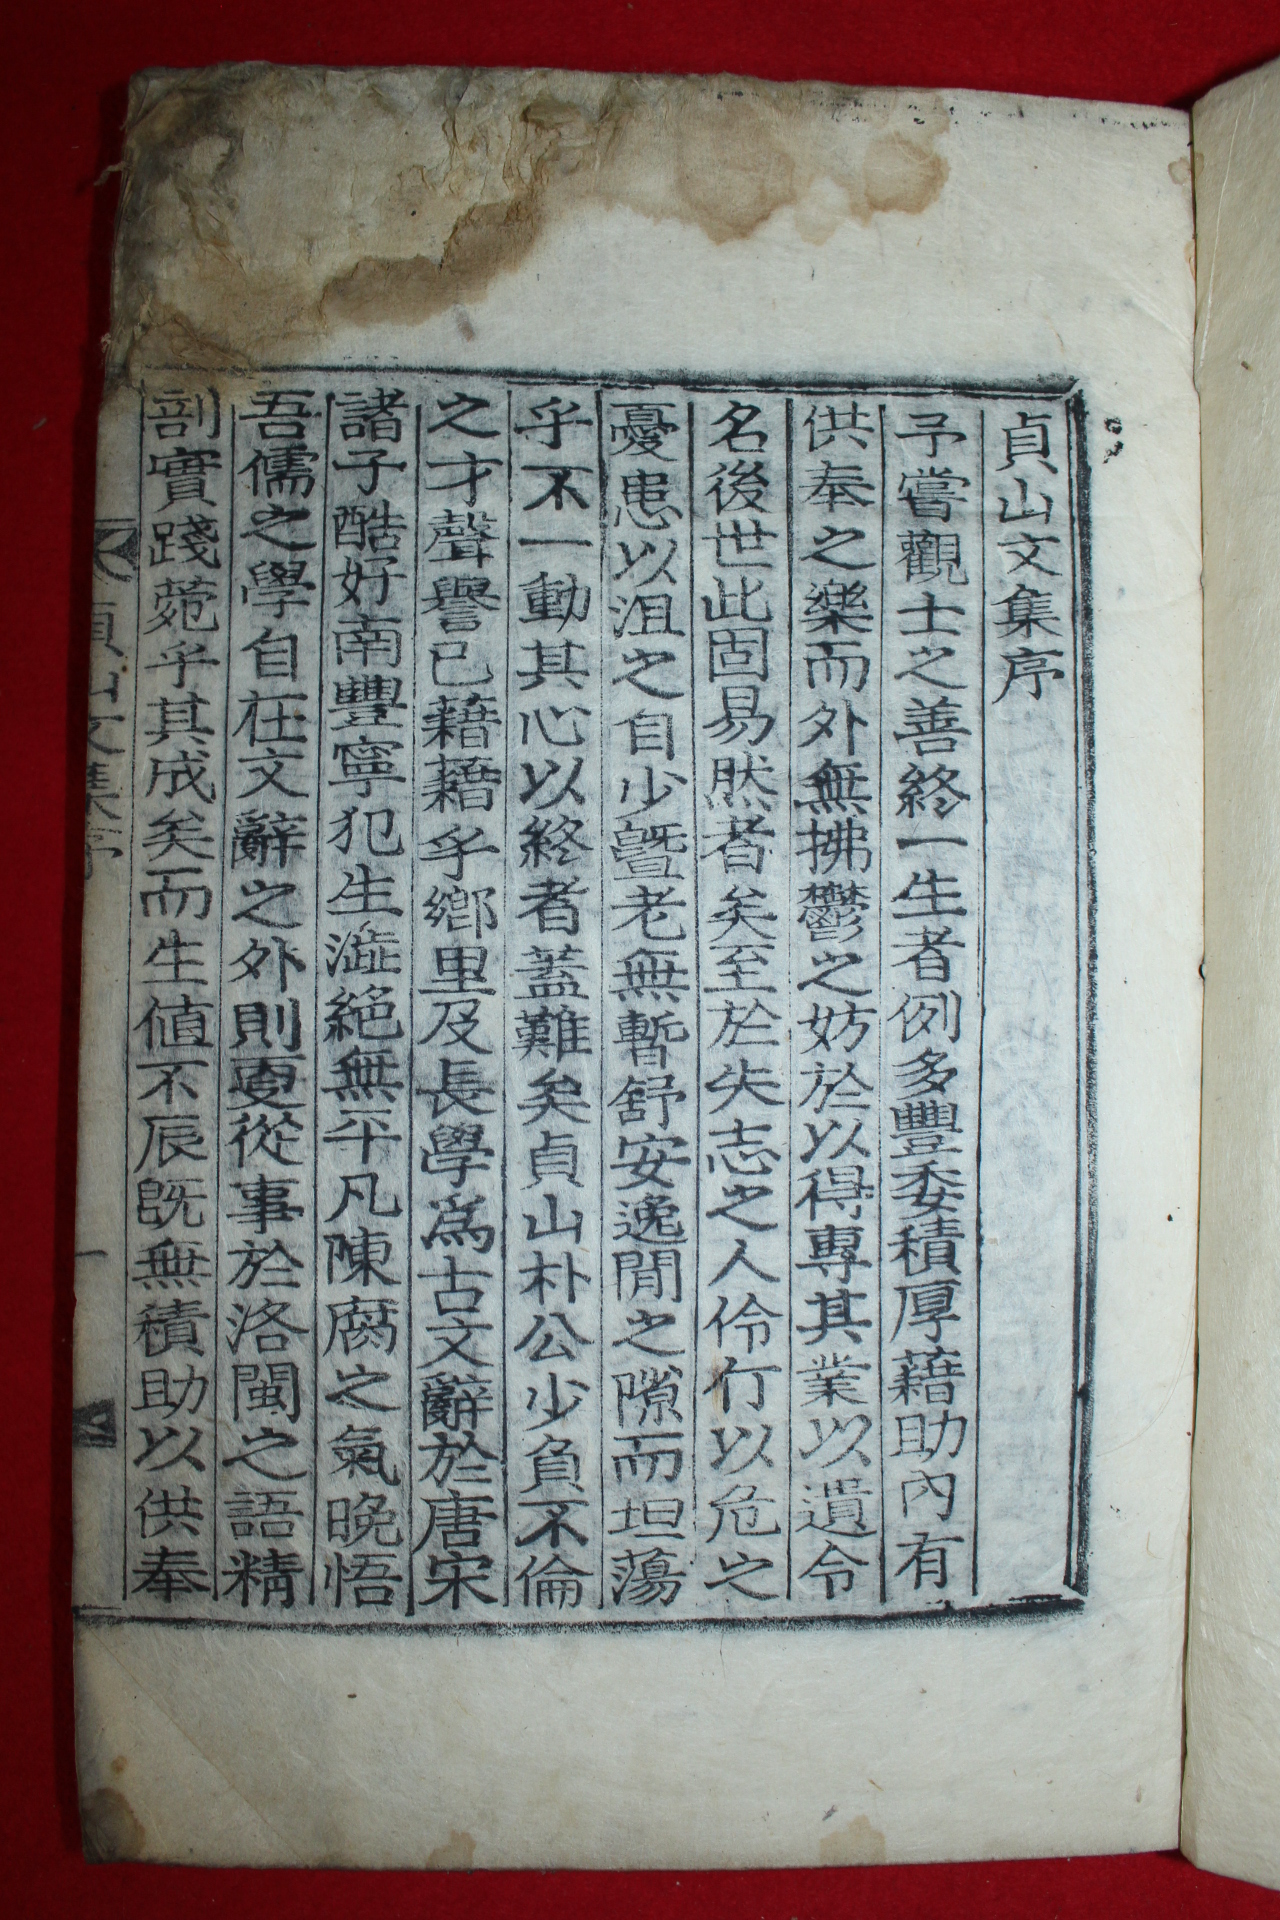 貞山文集序
予嘗觀士之善終一生者例多豐委積厚藉助內有
供奉之樂而外無拂鬱之妨於以得專其業以遺令
名後世此固易然者矣至於失志之人伶仃以危之
憂患以沮之自少曁老無暫舒安逸閒之隙而坦蕩
乎不一動其心以終者蓋難矣貞山朴公少負不倫
之才聲譽已藉藉乎鄉里及長學爲古文辭於唐宋
諸子酷好南豐寧犯生澁絕無平凡陳腐之氣晩悟
吾儒之學自在文辭之外則更從事於洛閩之語精
剖實踐菀乎其成矣而生値不辰旣無積助以供奉
貞山文集序
一